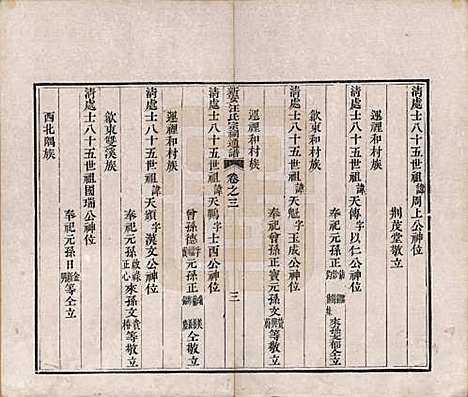 清處士八十五世祖諱周上公神位
荆茂堂敬立
歙東和村族
清處士八十五世祖諱天傳字以仁公神位
奉祀元孫正
來楚郁仝立
還裡和村族
清處士八十五世祖諱天魁字玉成公神位
奉祀曾孫正寶元孫文等敬立
還裡和村族
新安汪氏宗祠通譜
卷之三
三
清處士八十五世祖諱天鵬字士西公神位
曾孫德元孫正仝敬立
還裡和村族
清處士八十五世祖諱天順字漢文公神位
奉祀元孫啟祿正心來孫文等敬立
歙東雙溪族
清處士八十五世祖國瑞公神位
奉祀元孫日等仝立
西北隅族